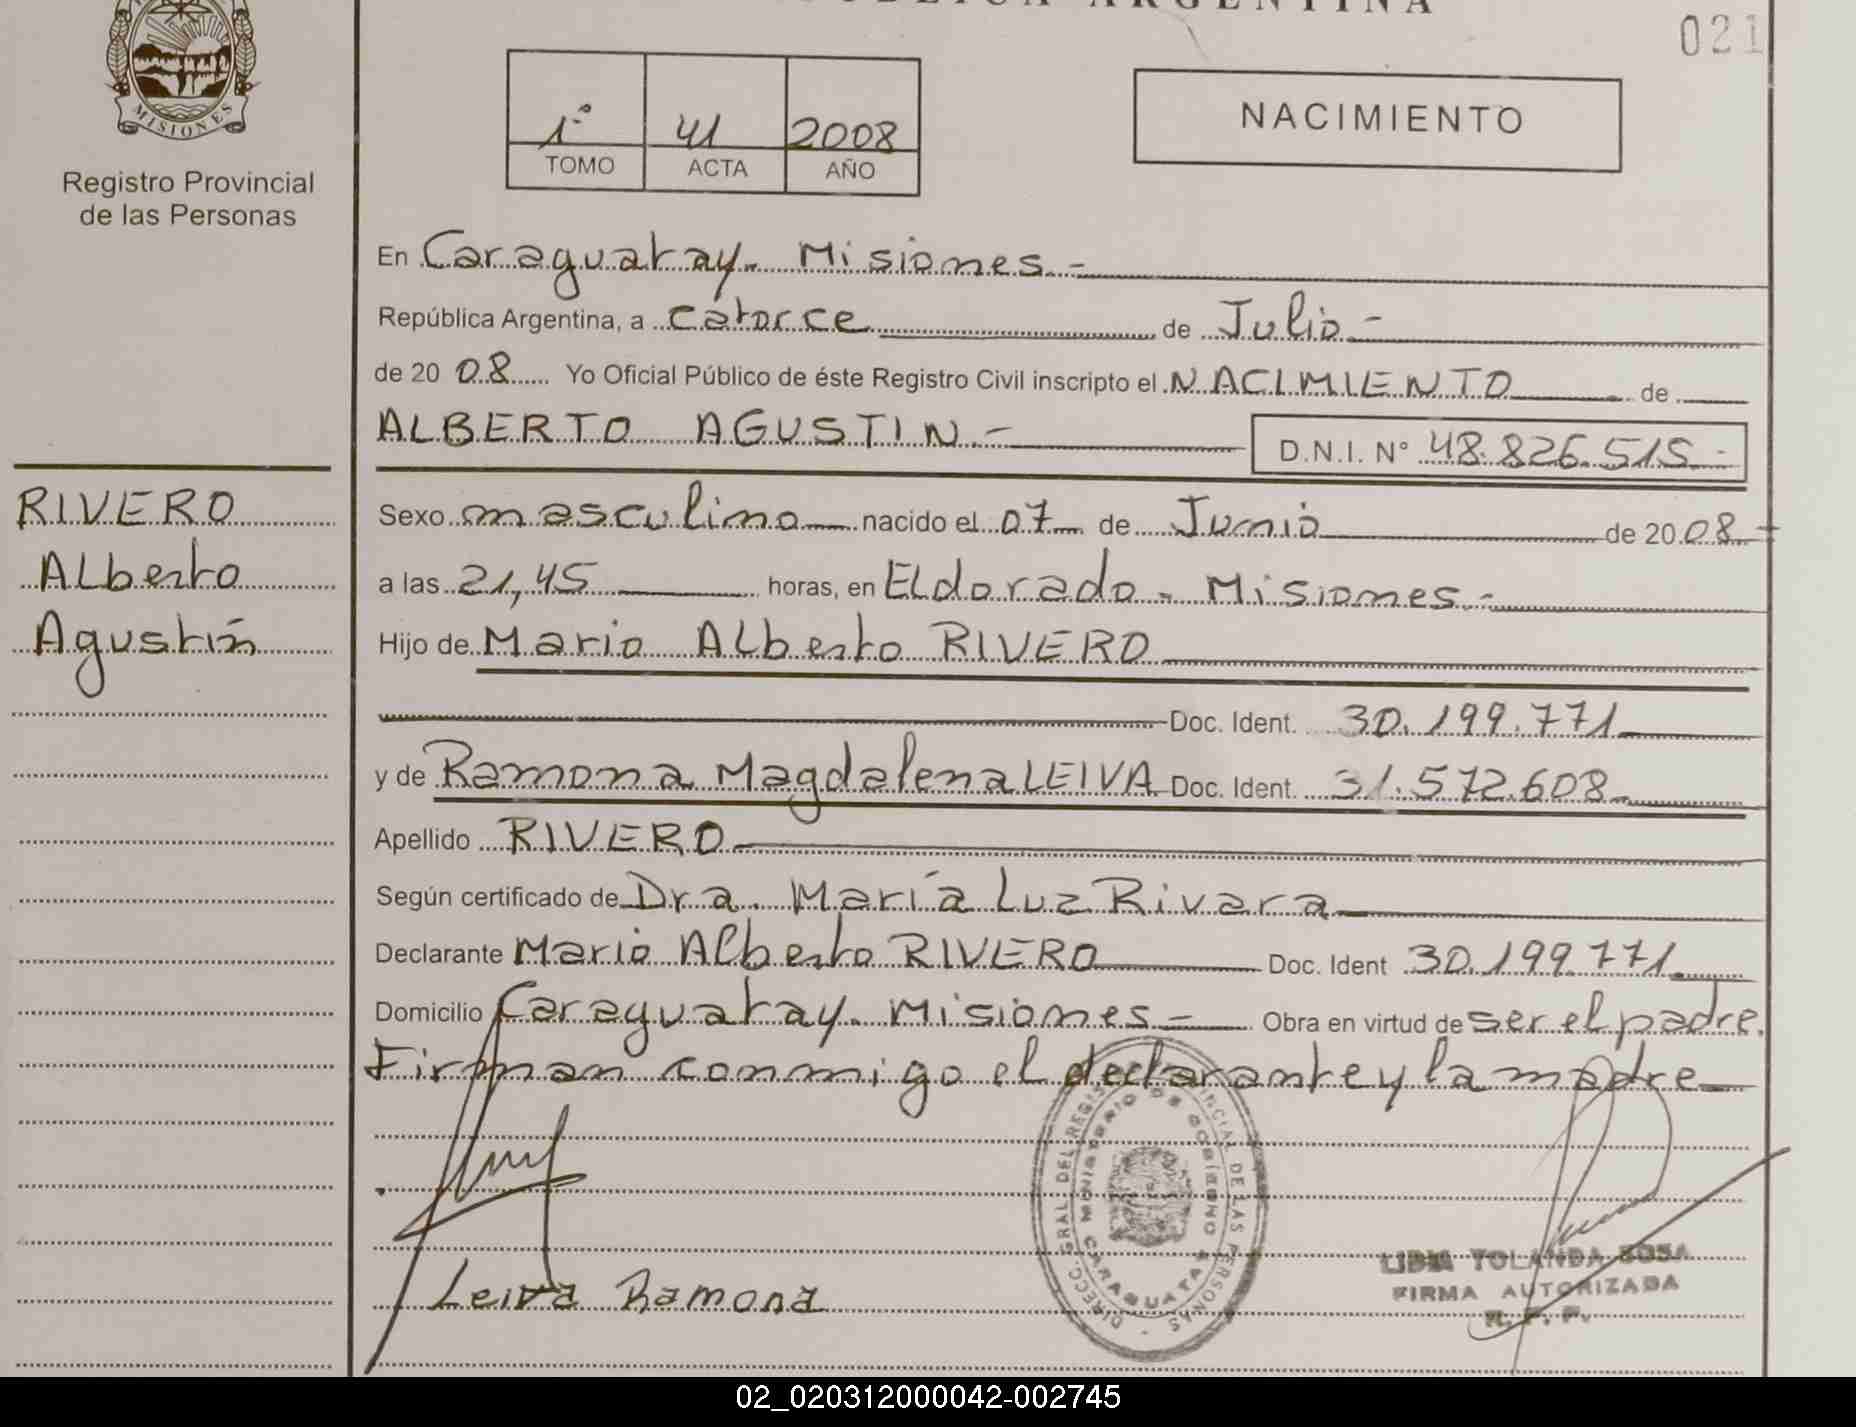 REPÚBLICA ARGENTINA
021
MISIONES
Registro Provincial
de las Personas
1º 41 2008
TOMO ACTA AÑO
NACIMIENTO
En Caraguatay - Misiones -
República Argentina, a catorce de Julio -
de 2008 Yo Oficial Público de éste Registro Civil inscripto el NACIMIENTO de
ALBERTO AGUSTIN.- D.N.I. Nº 48.826.515.-
RIVERO
Alberto
Agustín
Sexo masculino nacido el 07 de Junio de 2008
a las 21,45 horas, en Eldorado - Misiones.-
Hijo de Mario Alberto RIVERO
Doc. Ident. 30.199.771
y de Ramona Magdalena LEIVA Doc. Ident. 31.572.608
Apellido RIVERO
Según certificado de Dra. María Luz Rivara
Declarante Mario Alberto RIVERO Doc. Ident 30.199.771
Domicilio Caraguatay. Misiones - Obra en virtud de ser el padre.
Firman conmigo el declarante y la madre
DIRECC. GRAL. DEL REGISTRO PROVINCIAL DE LAS PERSONAS
MINISTERIO DE GOBIERNO
CARAGUATAY
Leiva Ramona
LIDIA YOLANDA SOSA
FIRMA AUTORIZADA
R. P. P.
02_020312000042-002745